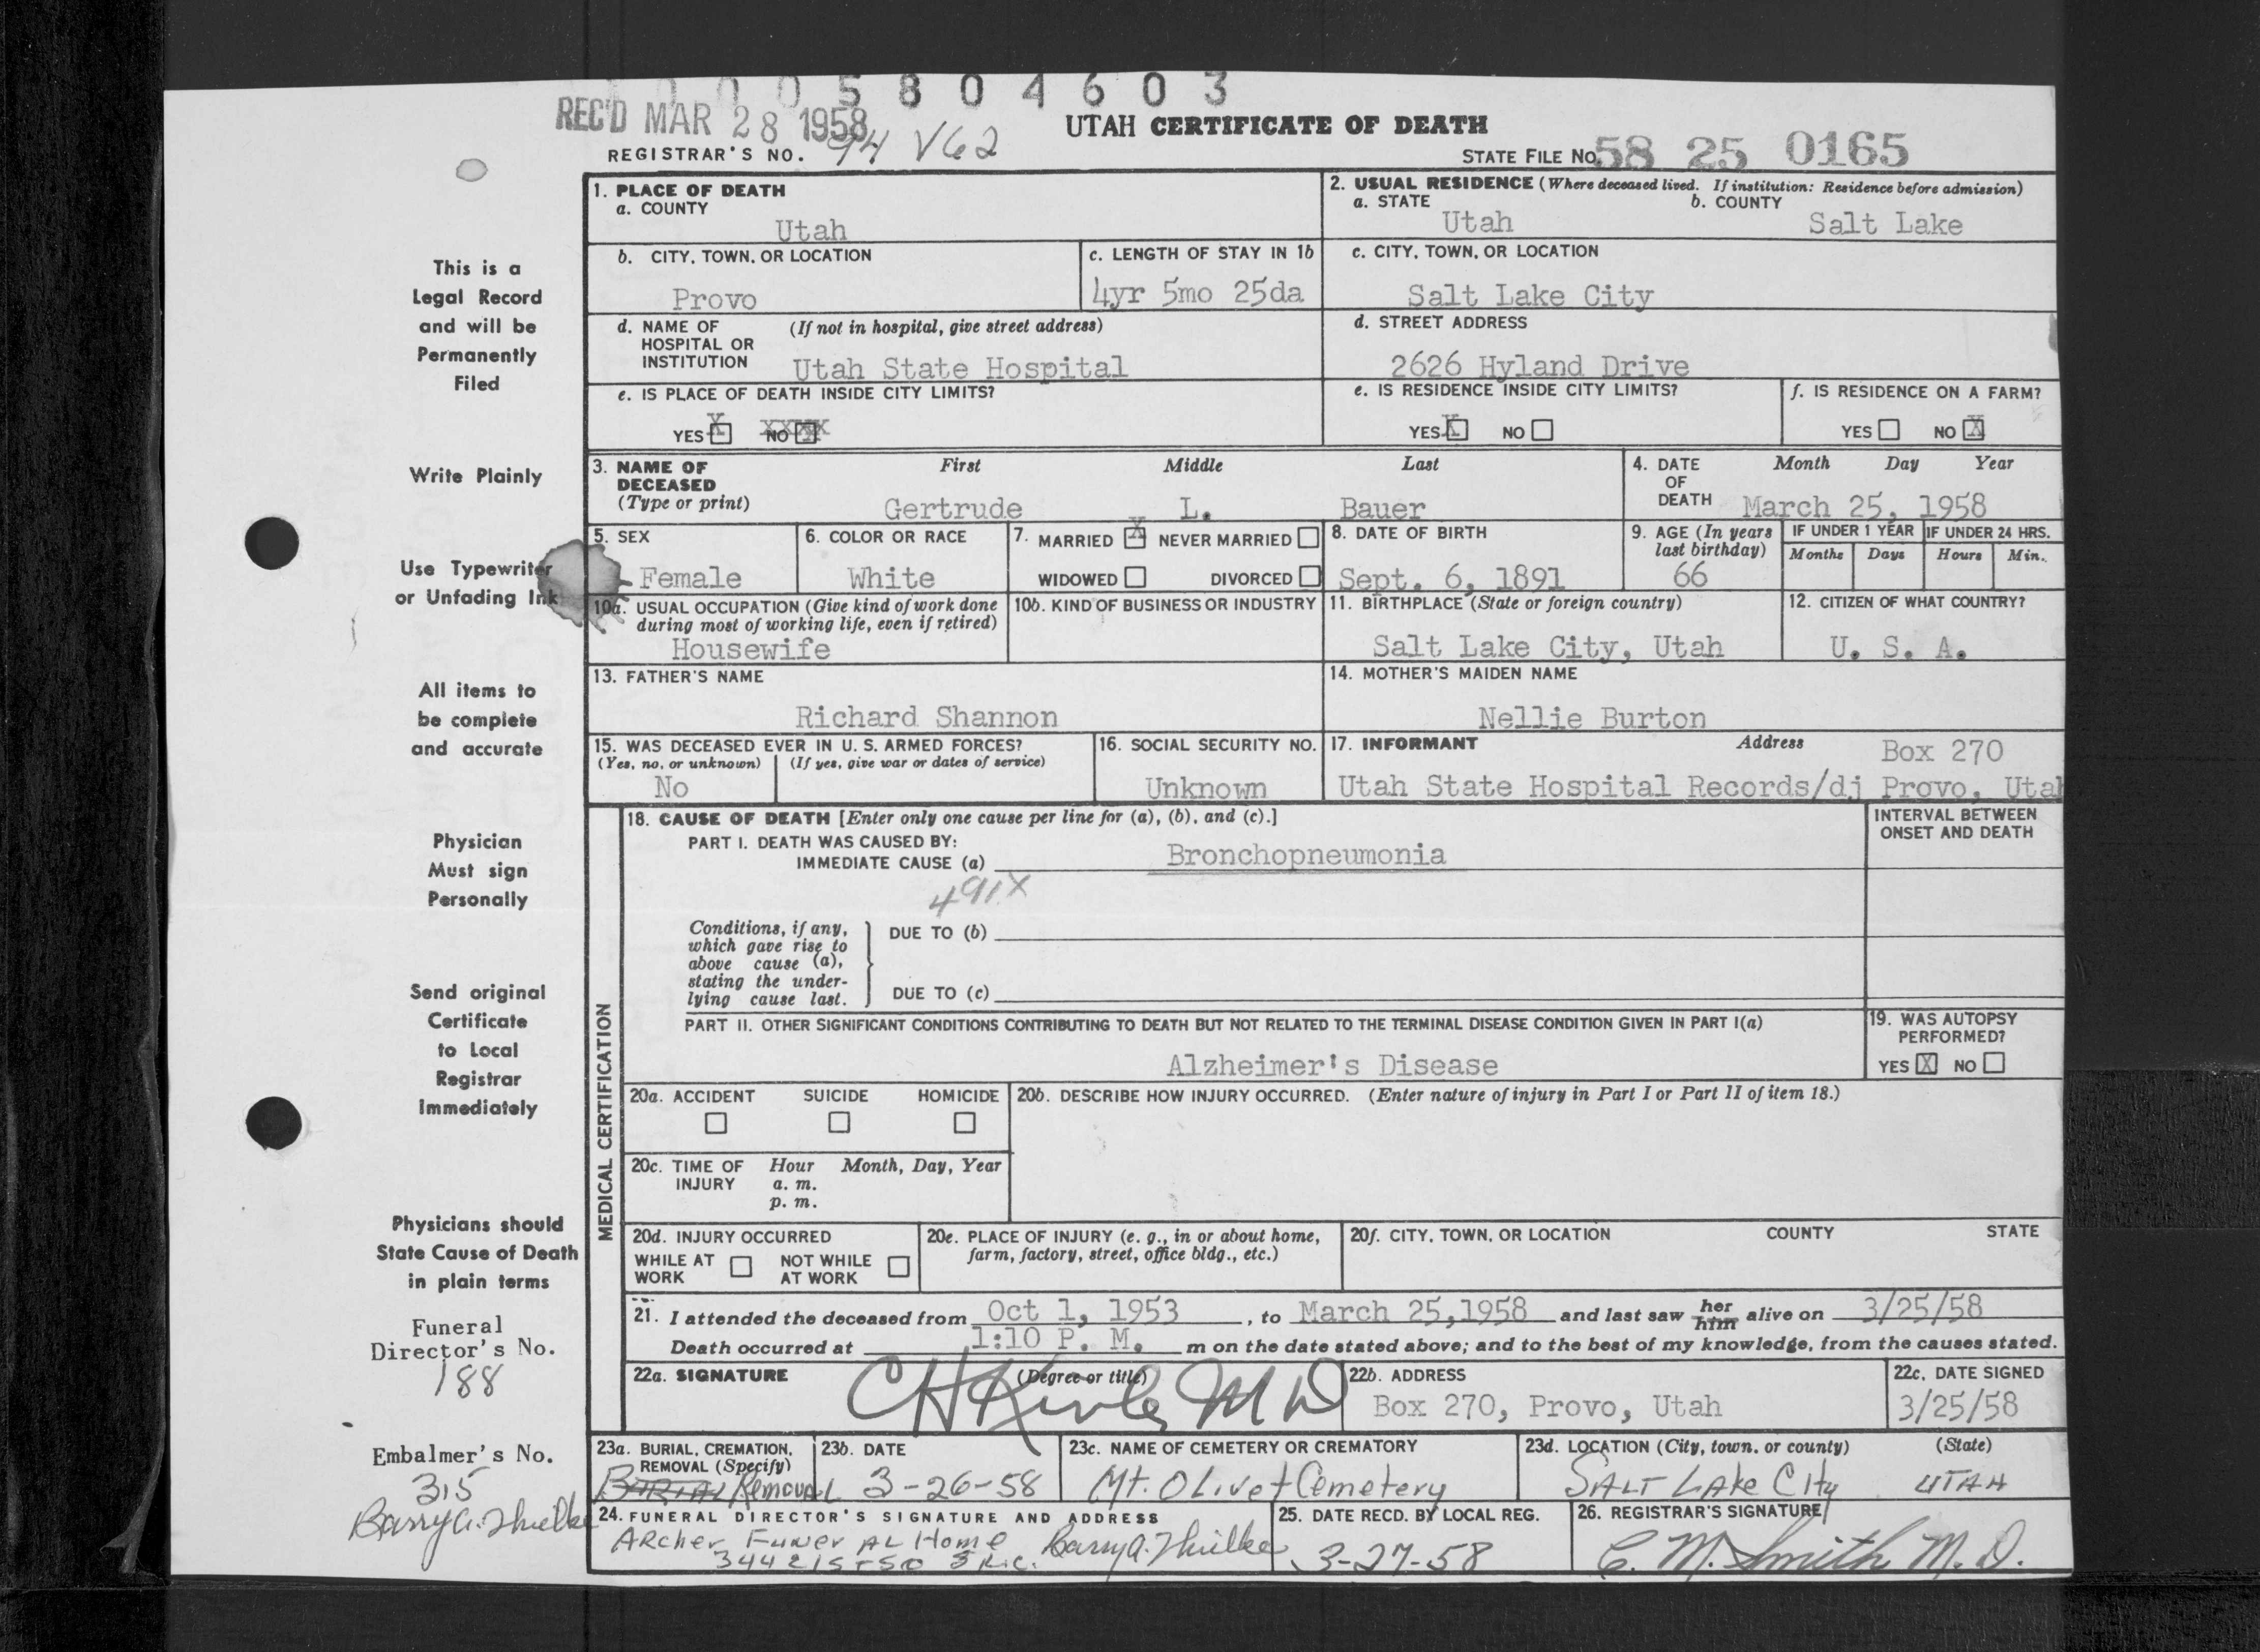 0 0 0 5 8 0 4 6 0 3
REC'D MAR 28 1958
UTAH CERTIFICATE OF DEATH
REGISTRAR'S NO. 94 V62
STATE FILE NO. 58 25 0165
This is a
Legal Record
and will be
Permanently
Filed
Write Plainly
Use Typewriter
or Unfading Ink
All items to
be complete
and accurate
Physician
Must sign
Personally
Send original
Certificate
to Local
Registrar
Immediately
Physicians should
State Cause of Death
in plain terms
Funeral
Director's No.
188
Embalmer's No.
315
Barry A.
1. PLACE OF DEATH
a. COUNTY
Utah
2. USUAL RESIDENCE (Where deceased lived. If institution: Residence before admission)
a. STATE b. COUNTY
Utah Salt Lake
b. CITY, TOWN, OR LOCATION
Provo
c. LENGTH OF STAY IN 1b
4yr 5mo 25da
c. CITY, TOWN, OR LOCATION
Salt Lake City
d. NAME OF (If not in hospital, give street address)
HOSPITAL OR
INSTITUTION Utah State Hospital
d. STREET ADDRESS
2626 Hyland Drive
e. IS PLACE OF DEATH INSIDE CITY LIMITS?
YES X NO XXXX
e. IS RESIDENCE INSIDE CITY LIMITS?
YES X NO
f. IS RESIDENCE ON A FARM?
YES NO X
3. NAME OF DECEASED First Middle Last
(Type or print) Gertrude L. Bauer
4. DATE OF DEATH Month Day Year
March 25, 1958
5. SEX
Female
6. COLOR OR RACE
White
7. MARRIED X NEVER MARRIED
WIDOWED DIVORCED
8. DATE OF BIRTH
Sept. 6, 1891
9. AGE (In years last birthday)
66
IF UNDER 1 YEAR IF UNDER 24 HRS.
Months Days Hours Min.
10a. USUAL OCCUPATION (Give kind of work done
during most of working life, even if retired)
Housewife
10b. KIND OF BUSINESS OR INDUSTRY
11. BIRTHPLACE (State or foreign country)
Salt Lake City, Utah
12. CITIZEN OF WHAT COUNTRY?
U. S. A.
13. FATHER'S NAME
Richard Shannon
14. MOTHER'S MAIDEN NAME
Nellie Burton
15. WAS DECEASED EVER IN U. S. ARMED FORCES?
(Yes, no, or unknown) (If yes, give war or dates of service)
No
16. SOCIAL SECURITY NO.
Unknown
17. INFORMANT Address Box 270
Utah State Hospital Records/dj Provo, Utah
MEDICAL CERTIFICATION
18. CAUSE OF DEATH [Enter only one cause per line for (a), (b), and (c).]
INTERVAL BETWEEN
ONSET AND DEATH
PART I. DEATH WAS CAUSED BY:
IMMEDIATE CAUSE (a) Bronchopneumonia
491X
Conditions, if any,
which gave rise to
above cause (a),
stating the under-
lying cause last.
DUE TO (b)
DUE TO (c)
PART II. OTHER SIGNIFICANT CONDITIONS CONTRIBUTING TO DEATH BUT NOT RELATED TO THE TERMINAL DISEASE CONDITION GIVEN IN PART I(a)
Alzheimer's Disease
19. WAS AUTOPSY
PERFORMED?
YES X NO
20a. ACCIDENT SUICIDE HOMICIDE
20b. DESCRIBE HOW INJURY OCCURRED. (Enter nature of injury in Part I or Part II of item 18.)
20c. TIME OF INJURY Hour Month, Day, Year
a. m.
p. m.
20d. INJURY OCCURRED
WHILE AT WORK NOT WHILE AT WORK
20e. PLACE OF INJURY (e. g., in or about home,
farm, factory, street, office bldg., etc.)
20f. CITY, TOWN, OR LOCATION COUNTY STATE
21. I attended the deceased from Oct 1, 1953, to March 25,1958 and last saw her him alive on 3/25/58
Death occurred at 1:10 P. M. m on the date stated above; and to the best of my knowledge, from the causes stated.
22a. SIGNATURE (Degree or title)
C H M D
22b. ADDRESS
Box 270, Provo, Utah
22c. DATE SIGNED
3/25/58
23a. BURIAL, CREMATION,
REMOVAL (Specify)
Burial Removal
23b. DATE
3-26-58
23c. NAME OF CEMETERY OR CREMATORY
Mt. Olivet Cemetery
23d. LOCATION (City, town, or county) (State)
Salt Lake City Utah
24. FUNERAL DIRECTOR'S SIGNATURE AND ADDRESS
Archer Funeral Home Barry A.
25. DATE RECD. BY LOCAL REG.
3-27-58
26. REGISTRAR'S SIGNATURE
C. M. Smith M. D.